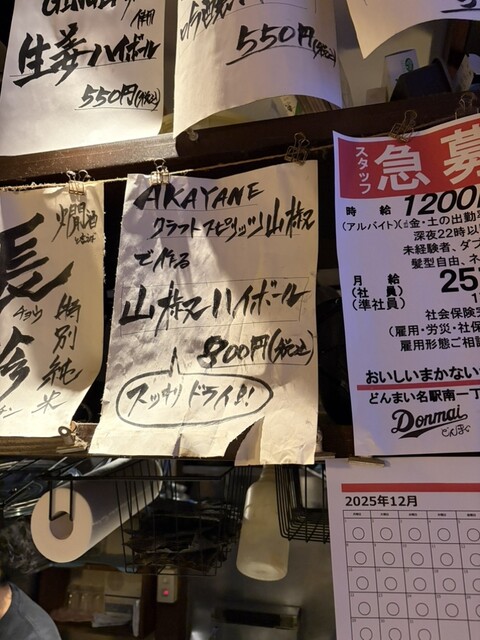 GINGER
使用
生姜ハイボール
550円(税込)
550円(税込)
燗酒
長
チョウ
特別純米
AKAYANE
クラフトスピリッツ山椒
で作る
山椒ハイボール
800円(税込)
スッキリドライ!!
スタッフ
急募
時給 1200
(アルバイト)
金・土の出勤
深夜22時以
未経験者、ダブ
髪型自由、ネ
月給 25
(社員)
(準社員)
社会保険完
(雇用・労災・社保
雇用形態ご相談
おいしいまかない
どんまい名駅南一丁
Donmai
どんまい
2025年12月